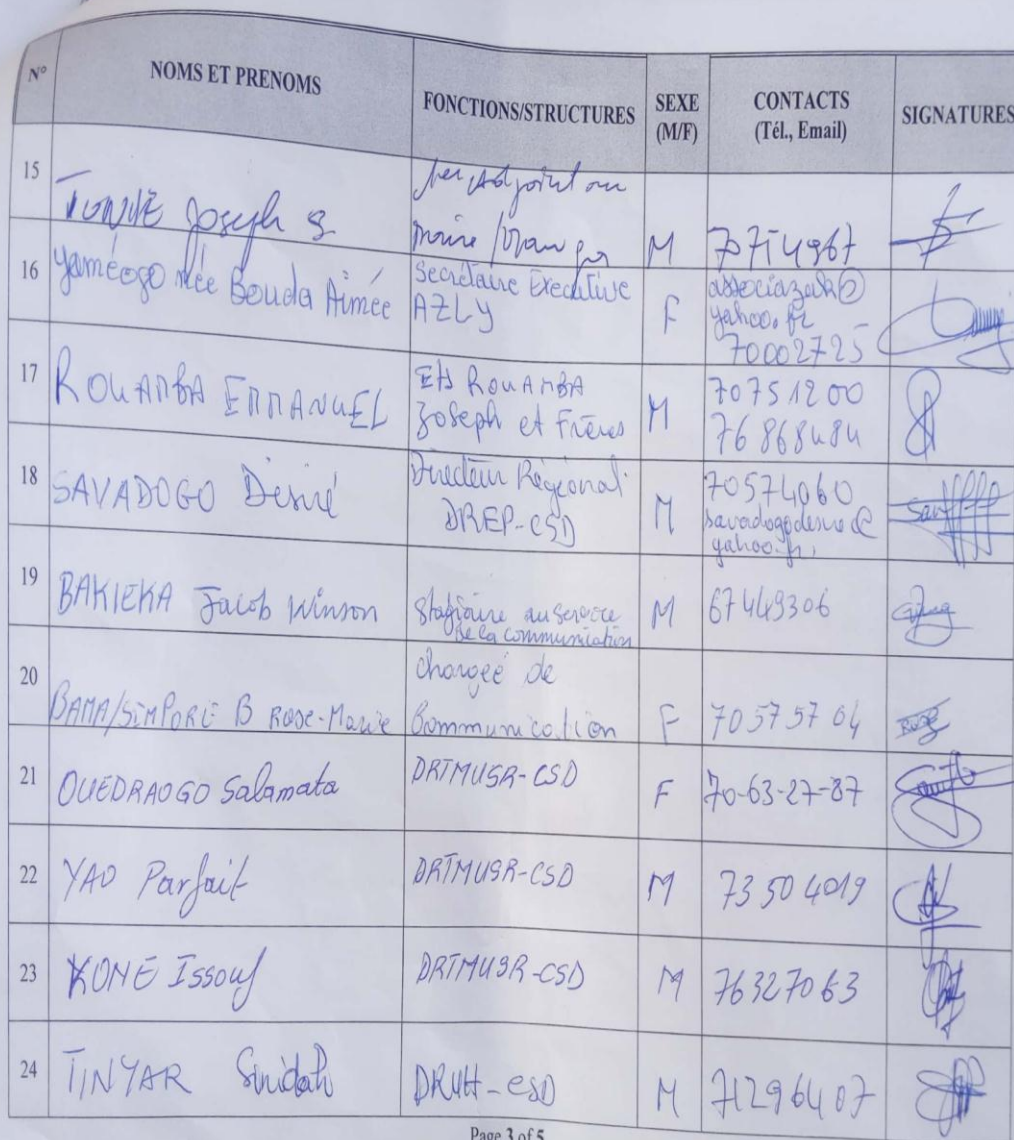 N° NOMS ET PRENOMS FONCTIONS/STRUCTURES SEXE (M/F) CONTACTS (Tél., Email) SIGNATURES
15 Joseph S 1er Adjoint au maire M
16 Yaméogo née Bouda Aimée Secrétaire Exécutive AZLY F associazak@yahoo.fr 70002725
17 ROUAMBA EMMANUEL Ets ROUAMBA Joseph et Frères M 70751200 76868484
18 SAVADOGO Désiré Directeur Régional DREP-CSD M 70574060 savadogodesire@yahoo.fr
19 BAKIEKA Jacob Winson Stagiaire au service de la communication M 67449306
20 BAMA/SIMPORE B Rose-Marie Chargée de Communication F 70575764
21 OUEDRAOGO Salamata DRTMUSR-CSD F 70-63-27-87
22 YAO Parfait DRTMUSR-CSD M 73504019
23 KONE Issouf DRTMUSR-CSD M 76327063
24 TINYAR DRUH-CSD M 71296407
Page 3 of 5